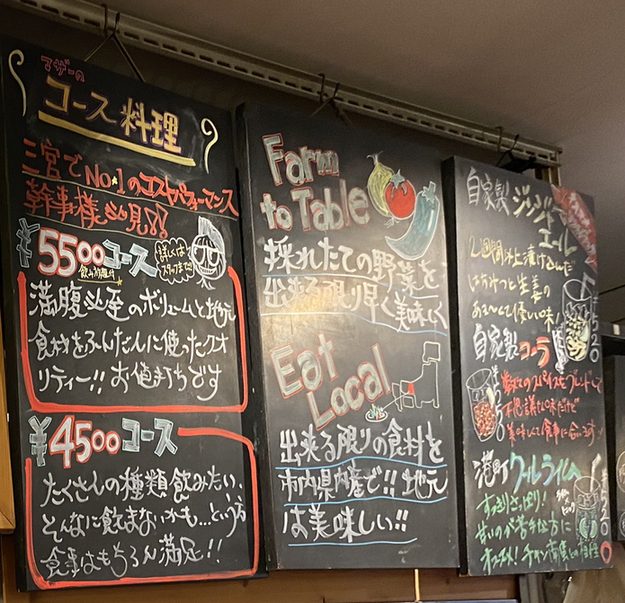 マザーの
コース料理
三宮でNo.1のコストパフォーマンス
幹事様必見!!
¥5500コース
飲み放題付
詳しくは
スタッフまで!!
満腹必至のボリュームと地元
食材をふんだんに使ったクオ
リティー!! お値打ちです
¥4500コース
たくさんの種類飲みたい!
そんなに飲まないかも...という方
食事はもちろん満足!!
Farm
to Table
採れたての野菜を
出来る限り早く美味しく
Eat
Local
出来る限りの食材を
市内県内産で!!地元
は美味しい!!
自家製 ジンジャー
エール
2週間以上漬け込んだ
はちみつと生姜の
あま〜くて優しい味
¥520
自家製コーラ
数種のスパイスをブレンドして
不思議な味だけど
美味しくて食事に合います
港町クールライム
すっきりさっぱり!
甘いのが苦手な方に
オススメ!
¥520